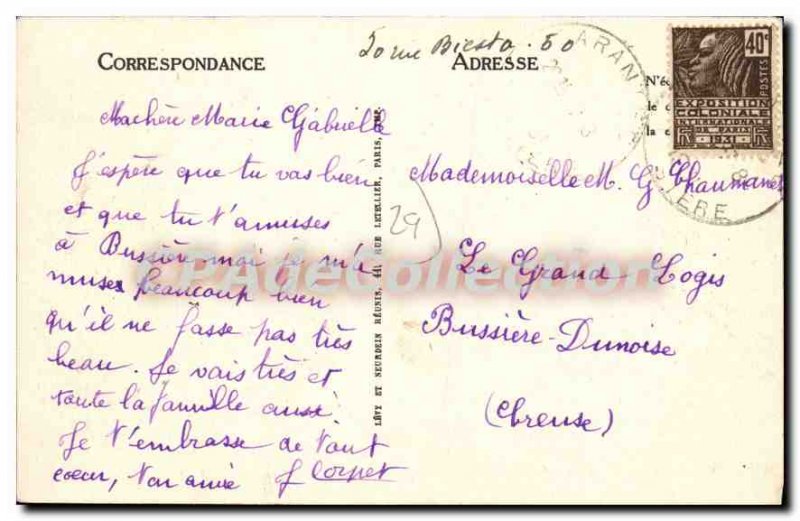 CORRESPONDANCE
ADRESSE
Ma chère Marie Gabrielle
J'espère que tu vas bien
et que tu t'amuses
à Bussière moi je m'a
muses beaucoup bien
qu'il ne fasse pas très
beau. Je vais très et
toute la famille aussi
Je t'embrasse de tout
coeur, ton amie J Cornet
LÉVY ET NEURDEIN RÉUNIS, 44, RUE LETELLIER, PARIS, IMP.
29
Mademoiselle M. G Chaumanet
Le Grand Logis
Bussière-Dunoise
(Creuse)
40c
POSTES
EXPOSITION
COLONIALE
INTERNATIONALE
DE PARIS
1931
N'é
le c
la c
CPAdeCollection